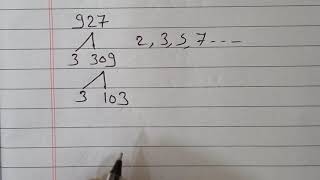 927
3 309 2, 3, 5, 7 ----
3 103